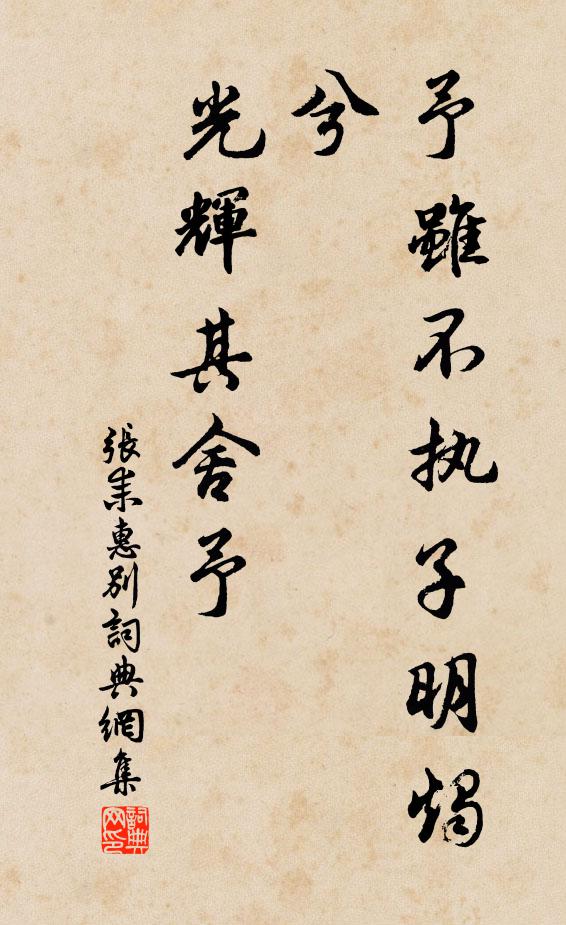 予雖不执子明燭
兮
光輝其舍予
張耒惠別詞典網集
詞典
网印